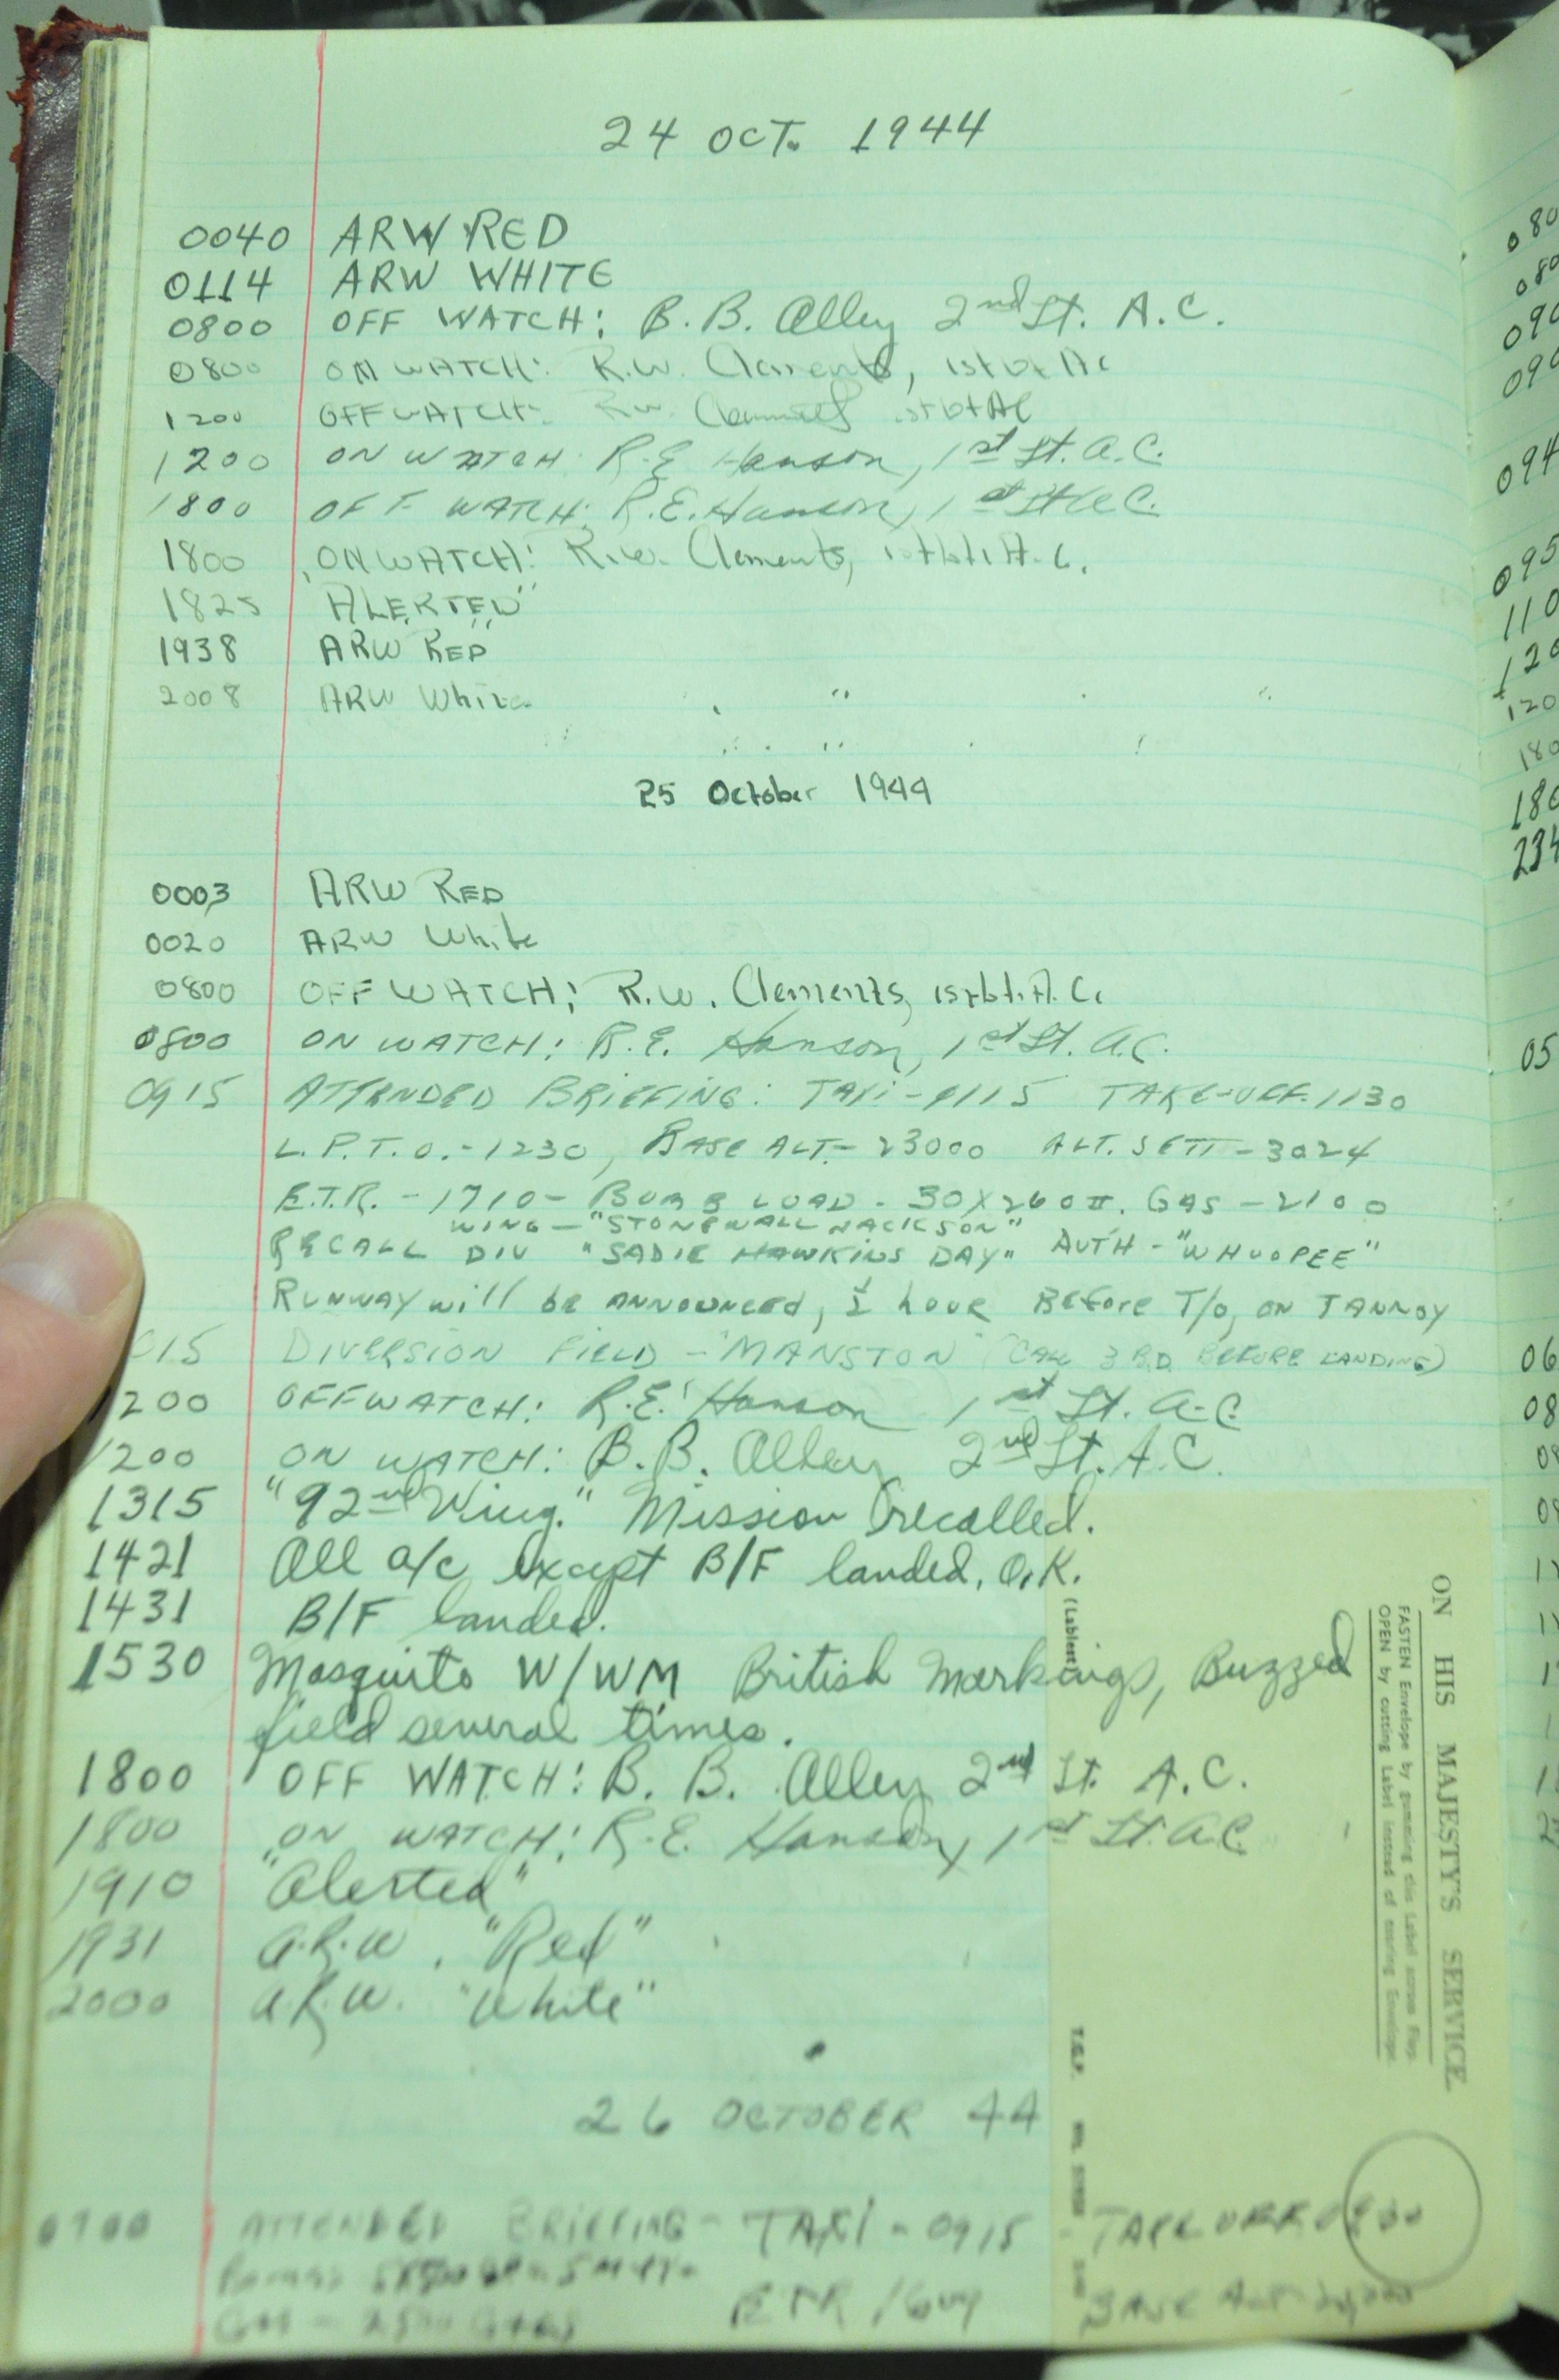 24 OCT. 1944
0040 ARW RED
0114 ARW WHITE
0800 OFF WATCH: B. B. Alley 2nd Lt. A.C.
0800 ON WATCH: R.W. Clements, 1st Lt AC
1200 OFF WATCH: R.W. Clements 1st Lt AC
1200 ON WATCH: R.E. Hanson, 1st Lt. A.C.
1800 OFF WATCH: R.E. Hanson, 1st Lt A.C.
1800 ON WATCH: R.W. Clements, 1st Lt. A.C.
1825 "ALERTED"
1938 ARW "RED"
2008 ARW White
25 October 1944
0003 ARW RED
0020 ARW White
0800 OFF WATCH; R.W. Clements, 1st Lt. A.C.
0800 ON WATCH: R.E. Hanson, 1st Lt. A.C.
0915 ATTENDED BRIEFING: TAXI-1115 TAKE-OFF-1130
L.P.T.O.-1230, BASE ALT.-23000 ALT. SETT-3024
E.T.R. -1710- BOMB LOAD - 30X260#. GAS-2100
WING-"STONEWALL JACKSON"
RECALL DIV "SADIE HAWKINS DAY" AUTH-"WHOOPEE"
RUNWAY will be ANNOUNCED, 1 hour BEFore T/O, ON TANNOY
015 DIVERSION FIELD - "MANSTON" (CALL 3 B.D. BEFORE LANDING)
200 OFF WATCH: R.E. Hanson 1st Lt. A.C.
1200 ON WATCH: B.B. Alley 2nd Lt. A.C.
1315 "92nd Wing." Mission recalled.
1421 All a/c except B/F landed, O.K.
1431 B/F landed.
1530 Mosquito W/WM British markings, Buzzed
field several times.
1800 OFF WATCH: B. B. Alley 2nd Lt. A.C.
1800 ON WATCH: R.E. Hanson, 1st Lt. A.C.
1910 "Alerted"
1931 A.R.W. "Red"
2000 A.R.W. "White"
26 OCTOBER 44
0700 ATTENDED BRIEFING - TAXI - 0915 TAKE OFF
GAS - 2500
ETR BASE ALT
ON HIS MAJESTY'S SERVICE.
FASTEN Envelope by gumming this Label across flap.
OPEN by cutting Label instead of tearing Envelope.
080
080
090
090
094
095
110
120
120
180
180
234
05
06
08